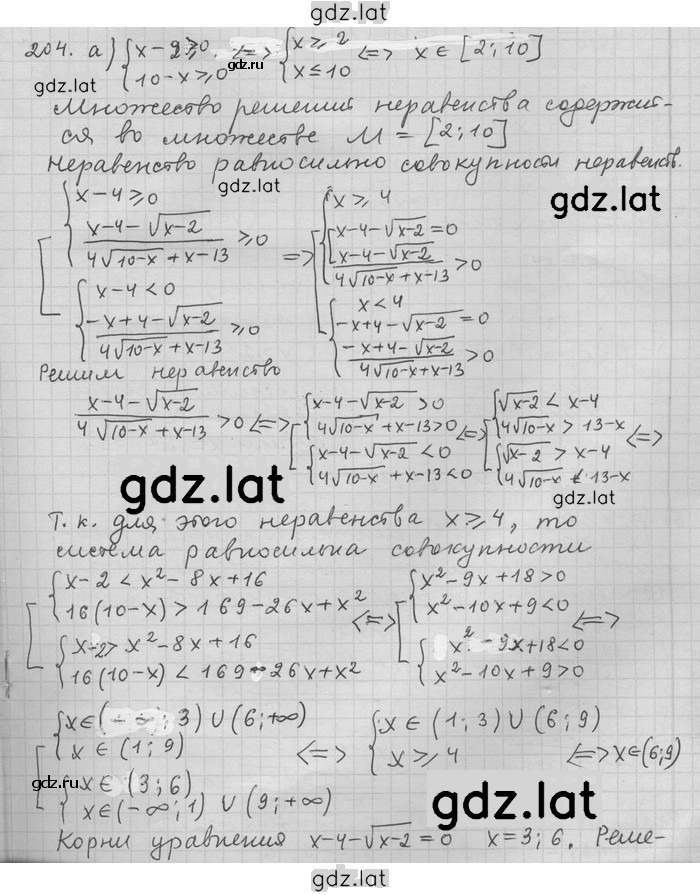 gdz.lat
204. а) { x-2≥0, <=> { x≥2 <=> x ∈ [2;10]
gdz.ru
{ 10-x≥0 { x≤10
gdz.lat
Множество решений неравенства содержит-
ся во множестве M = [2;10]
Неравенство равносильно совокупности неравенств.
gdz.lat
gdz.lat
[ { x-4≥0
(x-4-√(x-2))/(4√(10-x)+x-13) ≥0
{ x-4<0
(-x+4-√(x-2))/(4√(10-x)+x-13) ≥0
=> [ { x≥4
[ x-4-√(x-2)=0
(x-4-√(x-2))/(4√(10-x)+x-13) >0
{ x<4
[ -x+4-√(x-2) =0
(-x+4-√(x-2))/(4√(10-x)+x-13) >0
Решим неравенство
(x-4-√(x-2))/(4√(10-x)+x-13) >0 <=> [ { x-4-√(x-2) >0
4√(10-x)+x-13>0
{ x-4-√(x-2) <0
4√(10-x)+x-13<0
<=> [ { √(x-2) < x-4
4√(10-x) > 13-x
{ √(x-2) > x-4
4√(10-x) < 13-x
<=>
gdz.lat
gdz.lat
Т.к. для этого неравенства x≥4, то
система равносильна совокупности
[ { x-2 < x²-8x+16
16(10-x) > 169-26x+x²
{ x-2> x²-8x+16
16(10-x) < 169-26x+x²
<=> [ { x²-9x+18>0
x²-10x+9<0
{ x²-9x+18<0
x²-10x+9>0
<=>
[ { x∈(-∞;3)∪(6;+∞)
x∈(1;9)
{ x∈(3;6)
x∈(-∞;1) ∪ (9;+∞)
<=> { x ∈ (1;3)∪(6;9)
x≥4
<=> x∈(6;9)
gdz.ru
gdz.lat
gdz.lat
Корни уравнения x-4-√(x-2)=0 x=3; 6. Реше-
gdz.lat